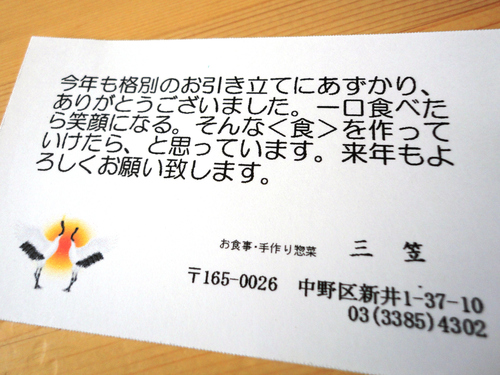 今年も格別のお引き立てにあずかり、
ありがとうございました。一口食べた
ら笑顔になる。そんな＜食＞を作って
いけたら、と思っています。来年もよ
ろしくお願い致します。
お食事・手作り惣菜　三　笠
〒165-0026　中野区新井1-37-10
03(3385)4302